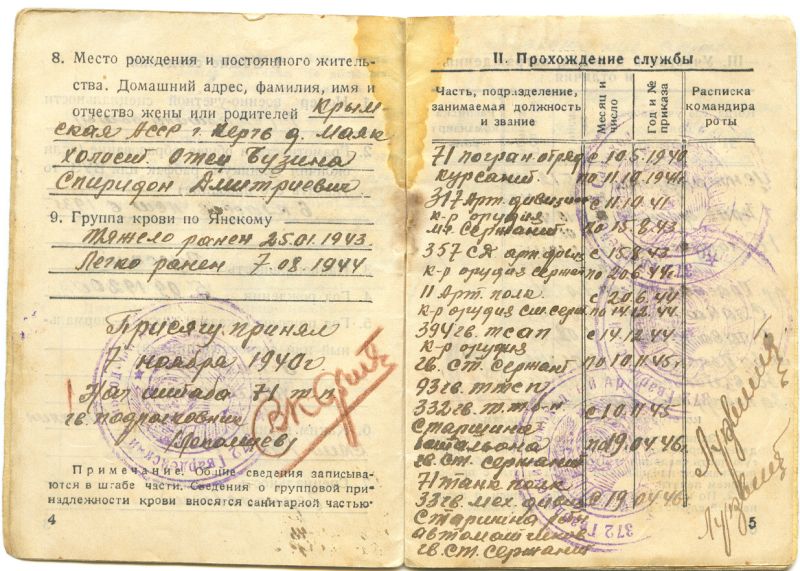 8. Место рождения и постоянного житель-
ства. Домашний адрес, фамилия, имя и
отчество жены или родителей Крым
ская АССР г. Керчь д. Маяк
Холост. Отец Бузина
Спиридон Дмитриевич
9. Группа крови по Янскому
Тяжело ранен 25.01.1943
Легко ранен 7.08.1944
Присягу принял
7 ноября 1940г
Нач штаба 71 т.п.
гв. подполковник
Примечание. Общие сведения записыва-
ются в штабе части. Сведения о групповой при-
надлежности крови вносятся санитарной частью
4
II. Прохождение службы
Часть, подразделение, занимаемая должность и звание
Месяц и число
Год и № приказа
Расписка командира роты
71 погран отряд с 10.5.1940
курсант по 11.10.1941
317 Арт. дивизион с 11.10.41
к-р орудия
мл. сержант по 15.8.43
357 СД арт. с 15.8.43
к-р орудия сержант по 20.6.44г.
11 Арт. полк с 20.6.44
к-р орудия ст. серж. по 14.12.44
394 гв. тсап с 14.12.44
к-р орудия
гв. ст. сержант по 10.11.45г
93 гв. ттсп
332 гв. т.т.с.п. с 10.11.45
Старшина
батальона по 19.04.46г
гв. ст. сержант
71 танк полк
33 гв. мех. дивиз с 19.04.46г
Старшина роты
автоматчиков
гв. ст. сержант
5